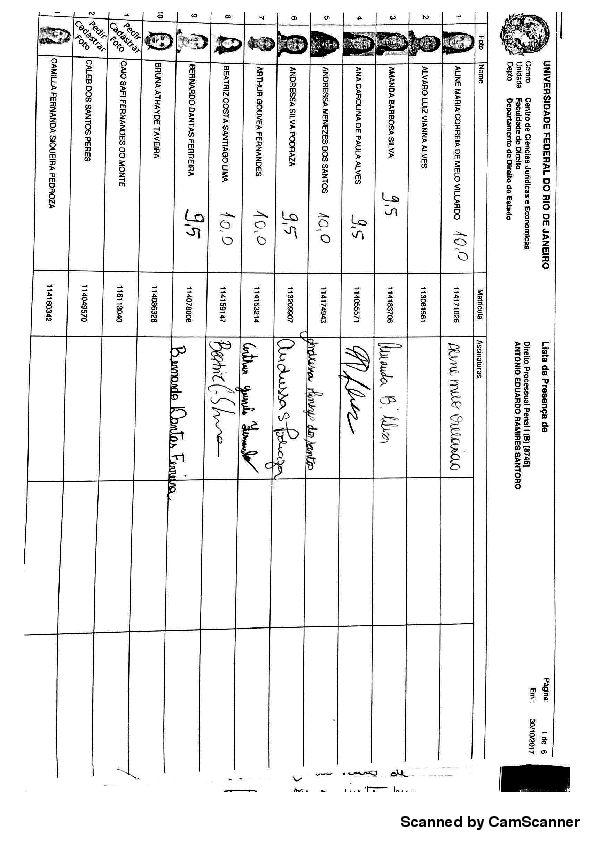 UNIVERSIDADE FEDERAL DO RIO DE JANEIRO
Centro Centro de Ciências Jurídicas e Econômicas
Unidade Faculdade de Direito
Depto Departamento de Direito do Estado
Lista de Presença de
Direito Processual Penal I (B) [8746]
ANTONIO EDUARDO RAMIRES SANTORO
Página: 1 de 6
Em: 30/10/2017
Foto Nome Matrícula Assinaturas
1 ALINE MARIA CORREIA DE MELO VILLARDO 10,0
2 ALVARO LUIZ VIANNA ALVES
3 AMANDA BARBOSA SILVA 9,5 Amanda B. Silva
4 ANA CAROLINA DE PAULA ALVES 9,5 114055571
5 ANDRESSA MENEZES DOS SANTOS 10,0 114174943 Andressa Menezes dos Santos
6 ANDRESSA SILVA PODRAZA 9,5 Andressa S Podraza
7 ARTHUR GOUVEA FERNANDES 10,0 114153214 Arthur Gouvêa Fernandes
8 BEATRIZ COSTA SANTIAGO LIMA 10,0 114159147
9 BERNARDO DANTAS FERREIRA 9,5 114078008 Bernardo Dantas Ferreira
10 BRUNA ATHAYDE TAVEIRA 114086328
1 Pedir Cadastrar Foto CAIO SAFI FERNANDES DO MONTE 116113040
2 Pedir Cadastrar Foto CALEB DOS SANTOS PERES 114049570
CAMILLA FERNANDA SIQUEIRA PEDROZA 114160342
Scanned by CamScanner